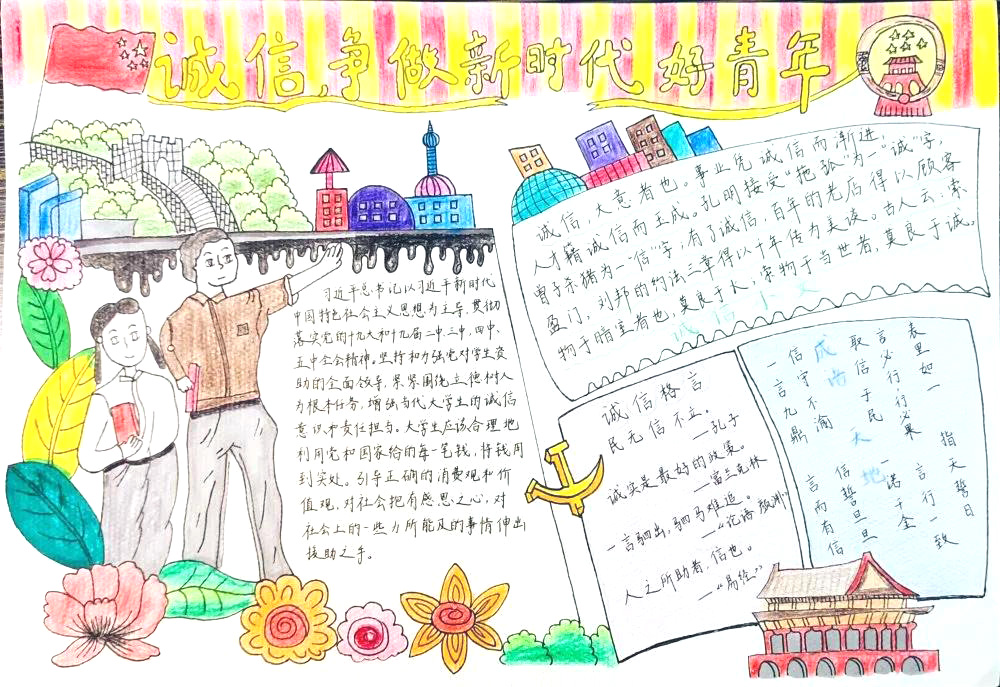 诚信,争做新时代好青年
习近平总书记以习近平新时代
中国特色社会主义思想为主导,贯彻
落实党的十九大和十九届二中,三中,四中,
五中全会精神。坚持和加强党对学生资
助的全面领导,紧紧围绕立德树人
为根本任务,增强当代大学生的诚信
意识和责任担当。大学生应该合理地
利用党和国家给的每一笔钱,将钱用
到实处。引导正确的消费观和价
值观,对社会抱有感恩之心,对
社会上的一些力所能及的事情伸出
援助之手。
诚信,大意者也。事业凭诚信而渐进;
人才籍诚信而玉成。孔明接受“拖张”为一“诚”字,
曾子杀猪为一“信”字;有了诚信,百年的老店得以顾客
盈门,刘邦的约法三章得以十年传为美谈。古人云:索
物于暗室者也,莫良于火;索物于当世者,莫良于诚。
诚信格言
民无信不立。
—孔子
诚实是最好的政策。
—富兰克林
一言驷出,驷马难追。
—“论语·颜渊”
人之所助者,信也。
—“易经”
表里如一
言必行行必果
取信于民
成语
一言九鼎
信守不渝
天地
指天誓日
言行一致
一诺千金
信誓旦旦
言而有信